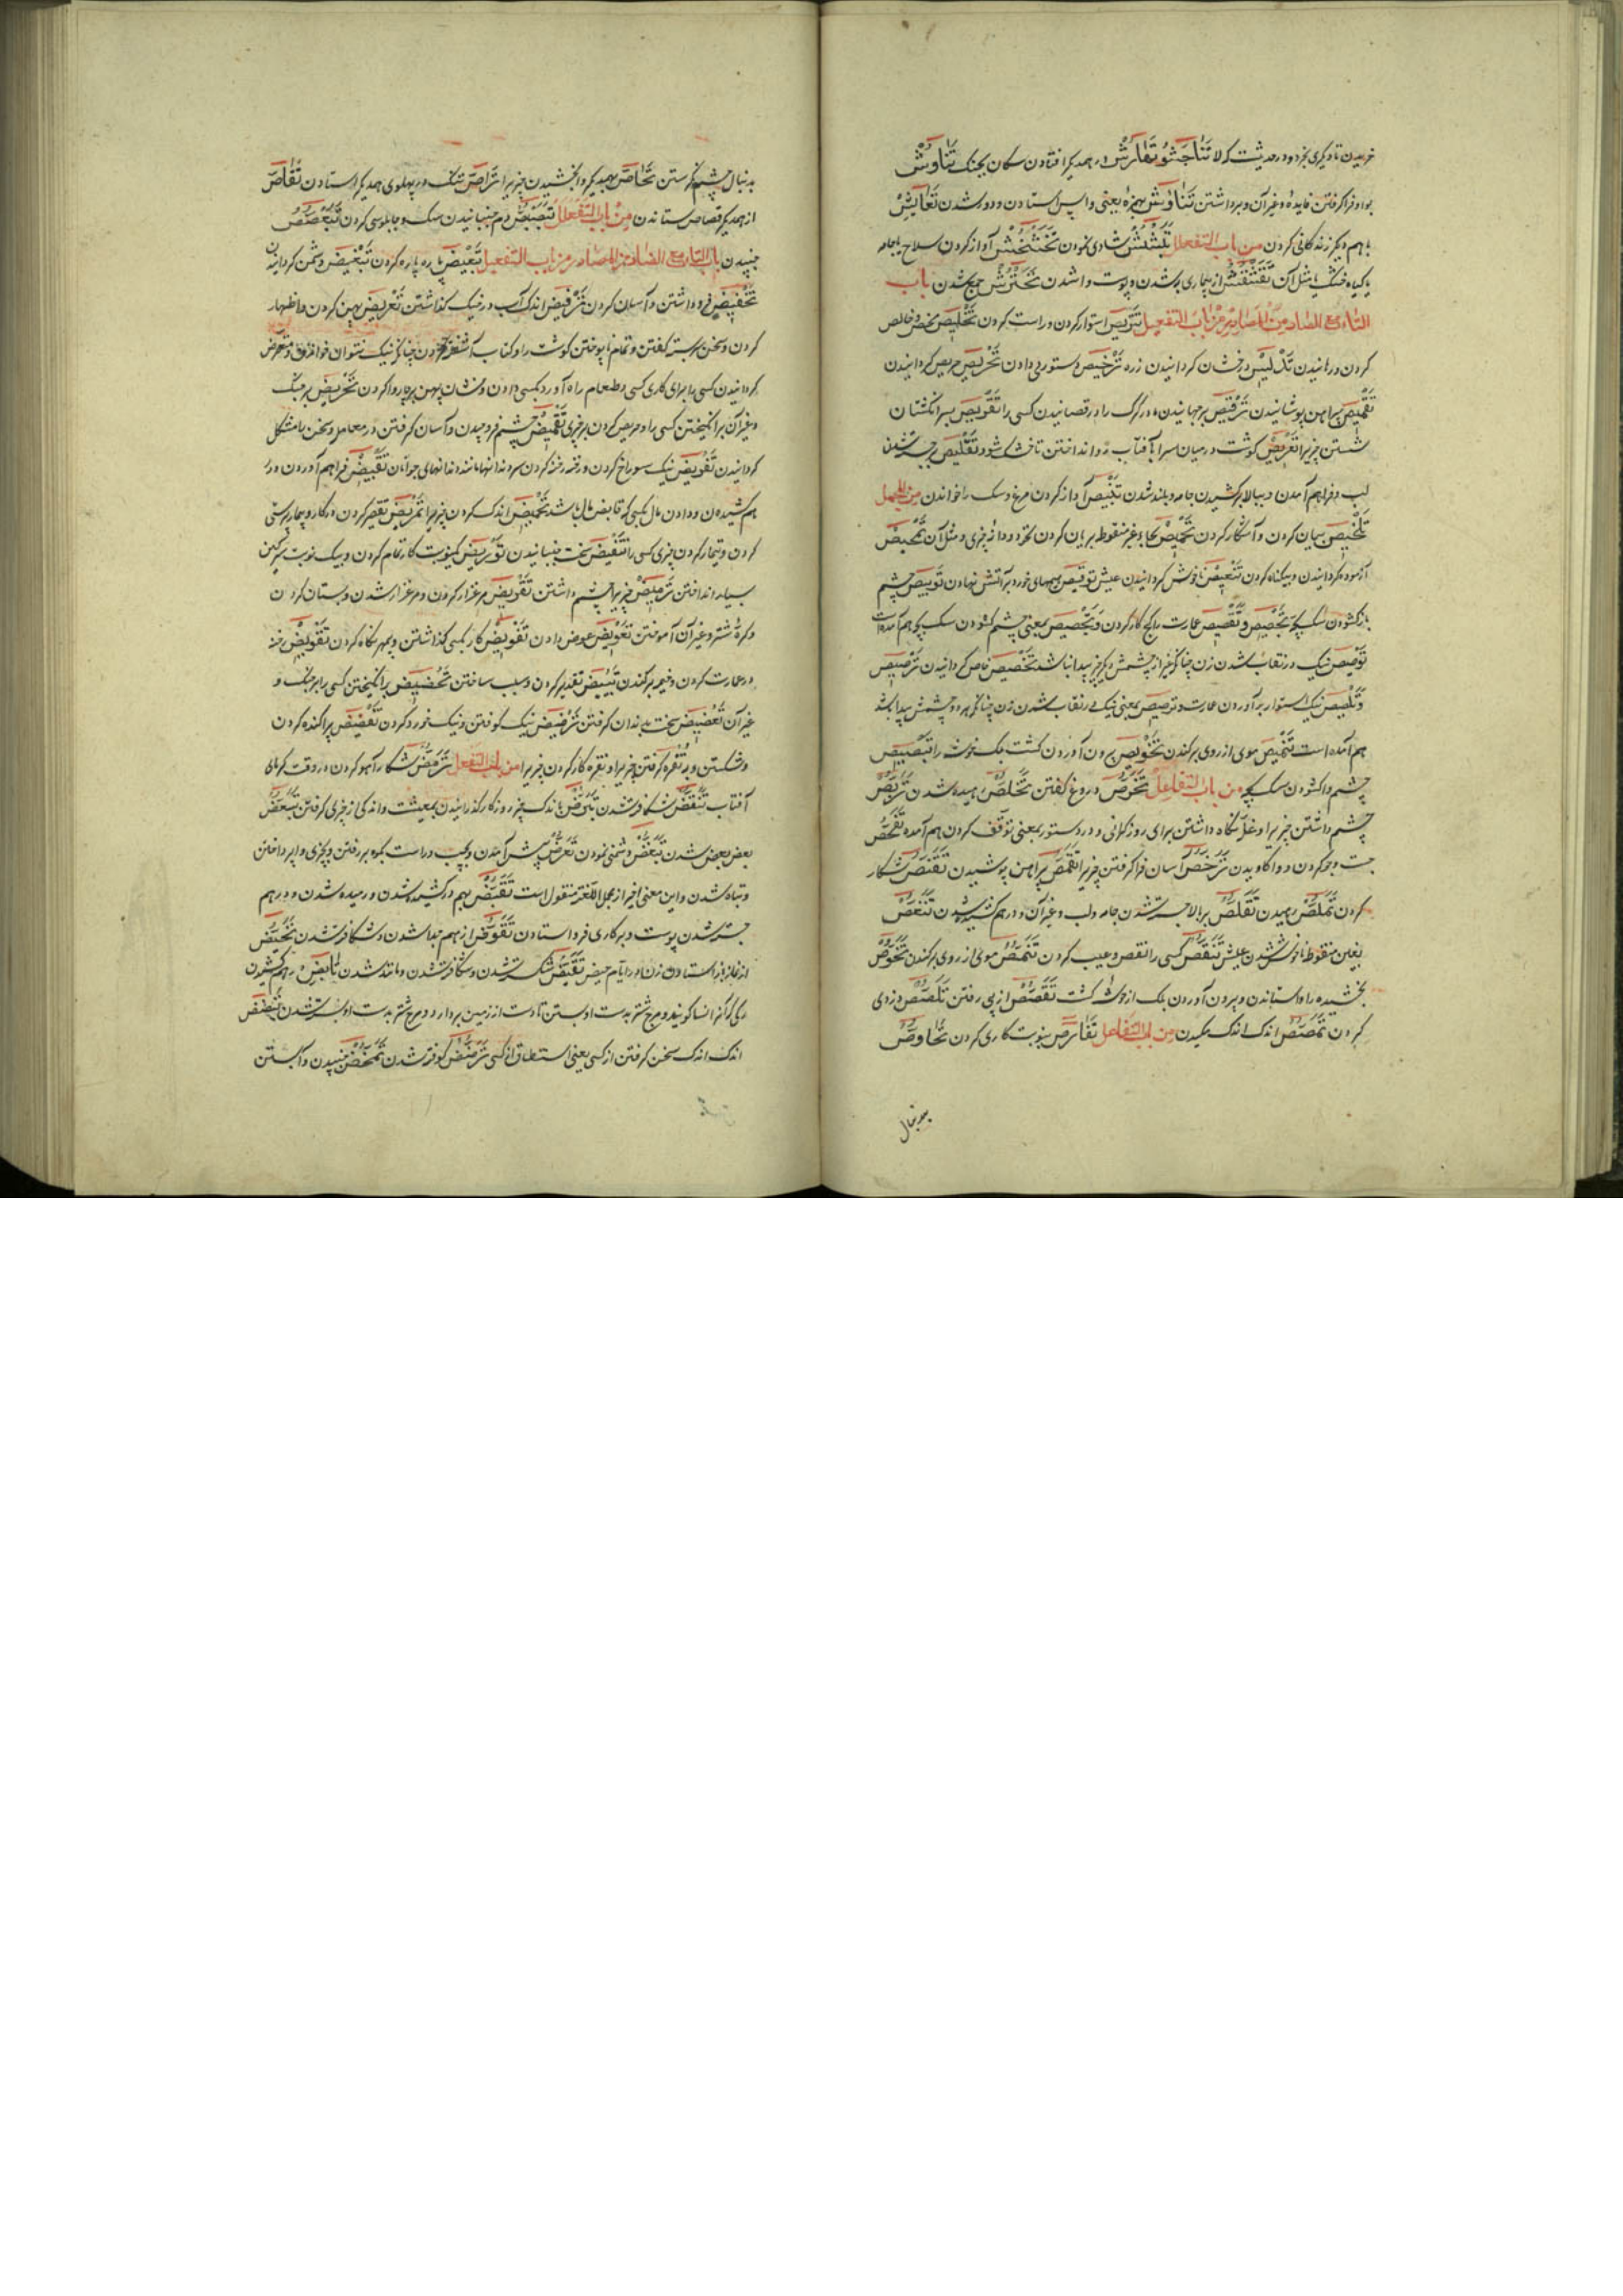 خریدن تا دیگری بخرد و در حدیثست که لا تناجشوا تهارش در همدیگر افتادن سگان بجنگ تناوش
فرا گرفتن فایده و غیر آن و برداشتن تناوش بهمزه یعنی واپس استادن و دور شدن تعایش
با هم دیگر زندگانی کردن من باب التفعلل تبشبش شادی نمودن تخشخش آواز کردن سلاح یا جامه
یا گیاه خشک یا مثل آن تقشقش از بیماری به شدن و پوست واشدن جمع شدن باب
التاء مع الصاد من المصادر من باب التفعیل تتریص استوار کردن و راست کردن تخلیص محض و خالص
کردن و رهانیدن تدلیص درخشان گردانیدن زره ترخیص دستوری دادن تحریص حریص گردانیدن
تقمیص پیراهن پوشانیدن ترقیص برجهانیدن مادر کودک را و رقصانیدن کسی را تقریص بسر انگشتان
شستن چیزیرا تعریص گوشت در میان سرا به آفتاب انداختن تا خشک شود تقلیص برجسته شدن
لب و فراهم آمدن و ببالا برکشیدن جامه و بلند شدن آواز کردن مرغ و سگ را خواندن من المجمل
تلخیص بیان کردن و آشکار کردن تحمیص بحاء غیر منقوطه بریان کردن نخود و دانه چیزی و مثل آن تمحیص
آزموده گردانیدن و بیگناه کردن تنغیص ناخوش گردانیدن عیش توقیص هیمهای خورد بر آتش نهادن توبیص چشم
باز گشودن سگ بچه تجصیص و تقصیص عمارت را بگچ کار کردن و تجصیص بمعنی چشم گشودن سگ بچه هم آمده است
توصیص نیک در نقاب شدن زن چنانکه غیر از چشمش دیگر چیز پیدا نباشد تخصیص خاص گردانیدن ترصیص
و تلصیص نیک استوار برآوردن عمارت و ترصیص بمعنی نیک در نقاب شدن زن چنانکه هر دو چشمش پیدا باشد
هم آمده است تنمیص موی از روی برکندن تخویص برون آوردن کشت یک خوشه را تبصیص
چشم واگشودن سگ بچه من باب التفعل تخرص دروغ گفتن تخلص رهیده شدن تربص
چشم داشتن چیزیرا و غله نگاه داشتن برای روز گرانی و در دستور بمعنی توقف کردن هم آمده تفحص
جست و جو کردن و واکاویدن ترخص آسان فرا گرفتن چیزیرا تقمص پیراهن پوشیدن تقنص شکار
کردن تملص رهیدن تقلص ببالا جسته شدن جامه و لب و غیر آن و در هم کشیده شدن تنغص
بغین منقوطه ناخوش شدن عیش تنقص کسی را نقص و عیب کردن تنمص موی از روی برکندن تخوص
بخشیده را واستاندن و بیرون آوردن یک از خوشه کشت تقصص از پی رفتن تلصص دزدی
کردن تمصص اندک اندک مکیدن من باب التفاعل تفارص بنوبت کاری کردن تحاوص
بدنبال
بدنبال چشم نگرستن تحاص بهمدیگر وابخشیدن چیزیرا تراص تنگ در پهلوی همدیگر استادن تقاص
از همدیگر قصاص ستاندن من باب التفعلل تبصبص دم جنبانیدن سگ و چاپلوسی کردن تبعصص
جنبیدن باب التاء مع الضاد من المصادر من باب التفعیل تبعیض پاره پاره کردن تبغیض دشمن گردانیدن
تخفیض فرو داشتن و آسان کردن ترفیض اندک آب در خیک گذاشتن تعریض پهن کردن و اظهار
کردن و سخن سربسته گفتن و تمام ناپختن گوشت را و کتاب آشفته کردن چنانکه نیک نتوان خواندن و متعرض
گردانیدن کسی را برای کاری کسی و طعام راه آورد بکسی دادن و نشان پهن بر چاروا کردن تحریض بر جنگ
و غیر آن برانگیختن کسی را و حریص کردن بر چیزی تغمیض چشم فرو چیدن و آسان گرفتن در معامله و سخن را مشکل
گردانیدن تفریض نیک سوراخ کردن و رخنه رخنه کردن سر دندانها مانند دندانهای جوانان تقبیض فراهم آوردن و در
هم کشیدن و دادن مال بکسی که قابض مال باشد تبعیض اندک کردن چیزیرا تمریض تقصیر کردن در کار و بیمارپرستی
کردن و تیمار کردن چیزی کسی را تنفیض سخت جنبانیدن
بسیار انداختن ترمیض چیزیرا چشم داشتن ترویض مرغزار کردن و مرغزار شدن و بستان کردن
و کره شتر و غیر آن آموختن تعویض عوض دادن تفویض کار بکسی گذاشتن و بمهر نکاح کردن تقویض رخنه
در عمارت کردن و خیمه برکندن تقییض تقدیر کردن و سبب ساختن تحضیض برانگیختن کسی را بر جنگ و
غیر آن تعضیض سخت بدندان گرفتن ترضیض نیک کوفتن و نیک خورد کردن تفضیض پراکنده کردن
و شکستن و به نقره گرفتن چیزیرا و نقره کار کردن چیزیرا من باب التفعل ترمض شکار آهو کردن در وقت گرمای
آفتاب تنقض شکافته شدن تبرض باندک چیز روزگار گذرانیدن بمعیشت و اندکی از چیزی گرفتن تبعض
بعض بعض شدن تبغض دشمنی نمودن تعرض پیش آمدن و بچپ و راست بکوه بر رفتن و بچیزی واپرداختن
و تباه شدن و این معنی اخیر از مجمل اللغة منقول است تقبض بهم درکشیده شدن و رمیده شدن و در هم
جسته شدن پوست و بر کاری فرو استادن تقوض از هم جدا شدن و شکافته شدن تحیض
از نماز باز استادن زن در ایام حیض تقیض شکسته شدن و شکافته شدن و مانند شدن تأبض در هم کشیدن
رگی که آنرا نسا گویند و هرچ شتر بدست او بستن تا دست از زمین بردارد و هرچ شتر بدست او بسته شدن تنضض
اندک اندک سخن گرفتن از کسی یعنی استنطاق از کسی ترضض کوفته شدن تمخض جنبیدن و آبستن